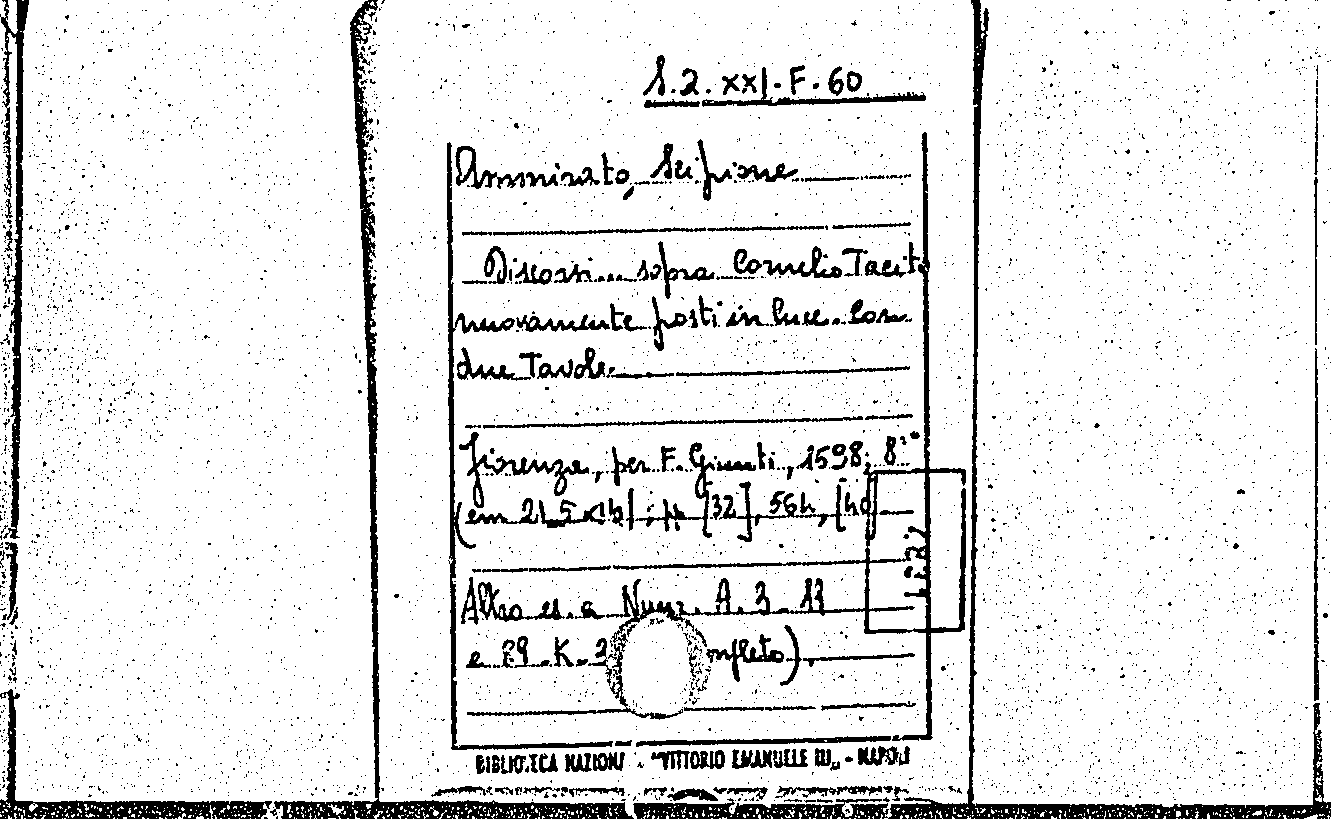 S.2.XXI.F.60
Ammirato, Scipione
Discorsi... sopra Cornelio Tacito
nuovamente posti in luce. Con
due Tavole.
Fiorenza, per F. Giunti, 1598; 8°
(cm 21,5 ; pp [32], 564, [40]
Altro es. a Nunz. A. 3. 11
e 89.K.3 mpleto).
BIBLIOTECA NAZION "VITTORIO EMANUELE III„ - NAPOLI